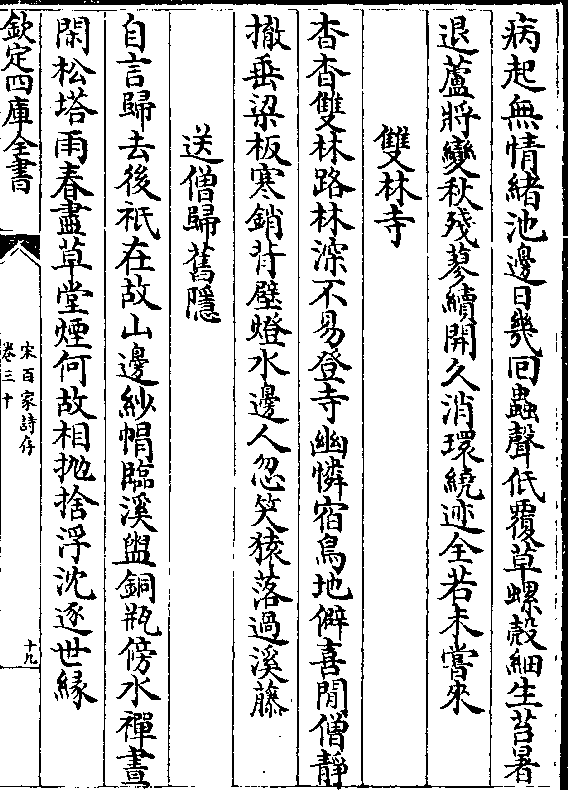 病起無情緒池邊日幾回蟲聲低覆草螺殼細生苔暑
退蘆將變秋殘蓼續開久消環繞迹全若未嘗來
雙林寺
杳杳雙林路林深不易登寺幽憐宿鳥地僻喜閒僧靜
撤垂梁板寒銷背壁燈水邊人忽笑猿落過溪藤
送僧歸舊隱
自言歸去後祇在故山邊紗帽臨溪盥銅瓶傍水禪晝
閑松塔雨春盡草堂煙何故相抛捨浮沈逐世緣
欽定四庫全書
宋百家詩存
卷三十
十九